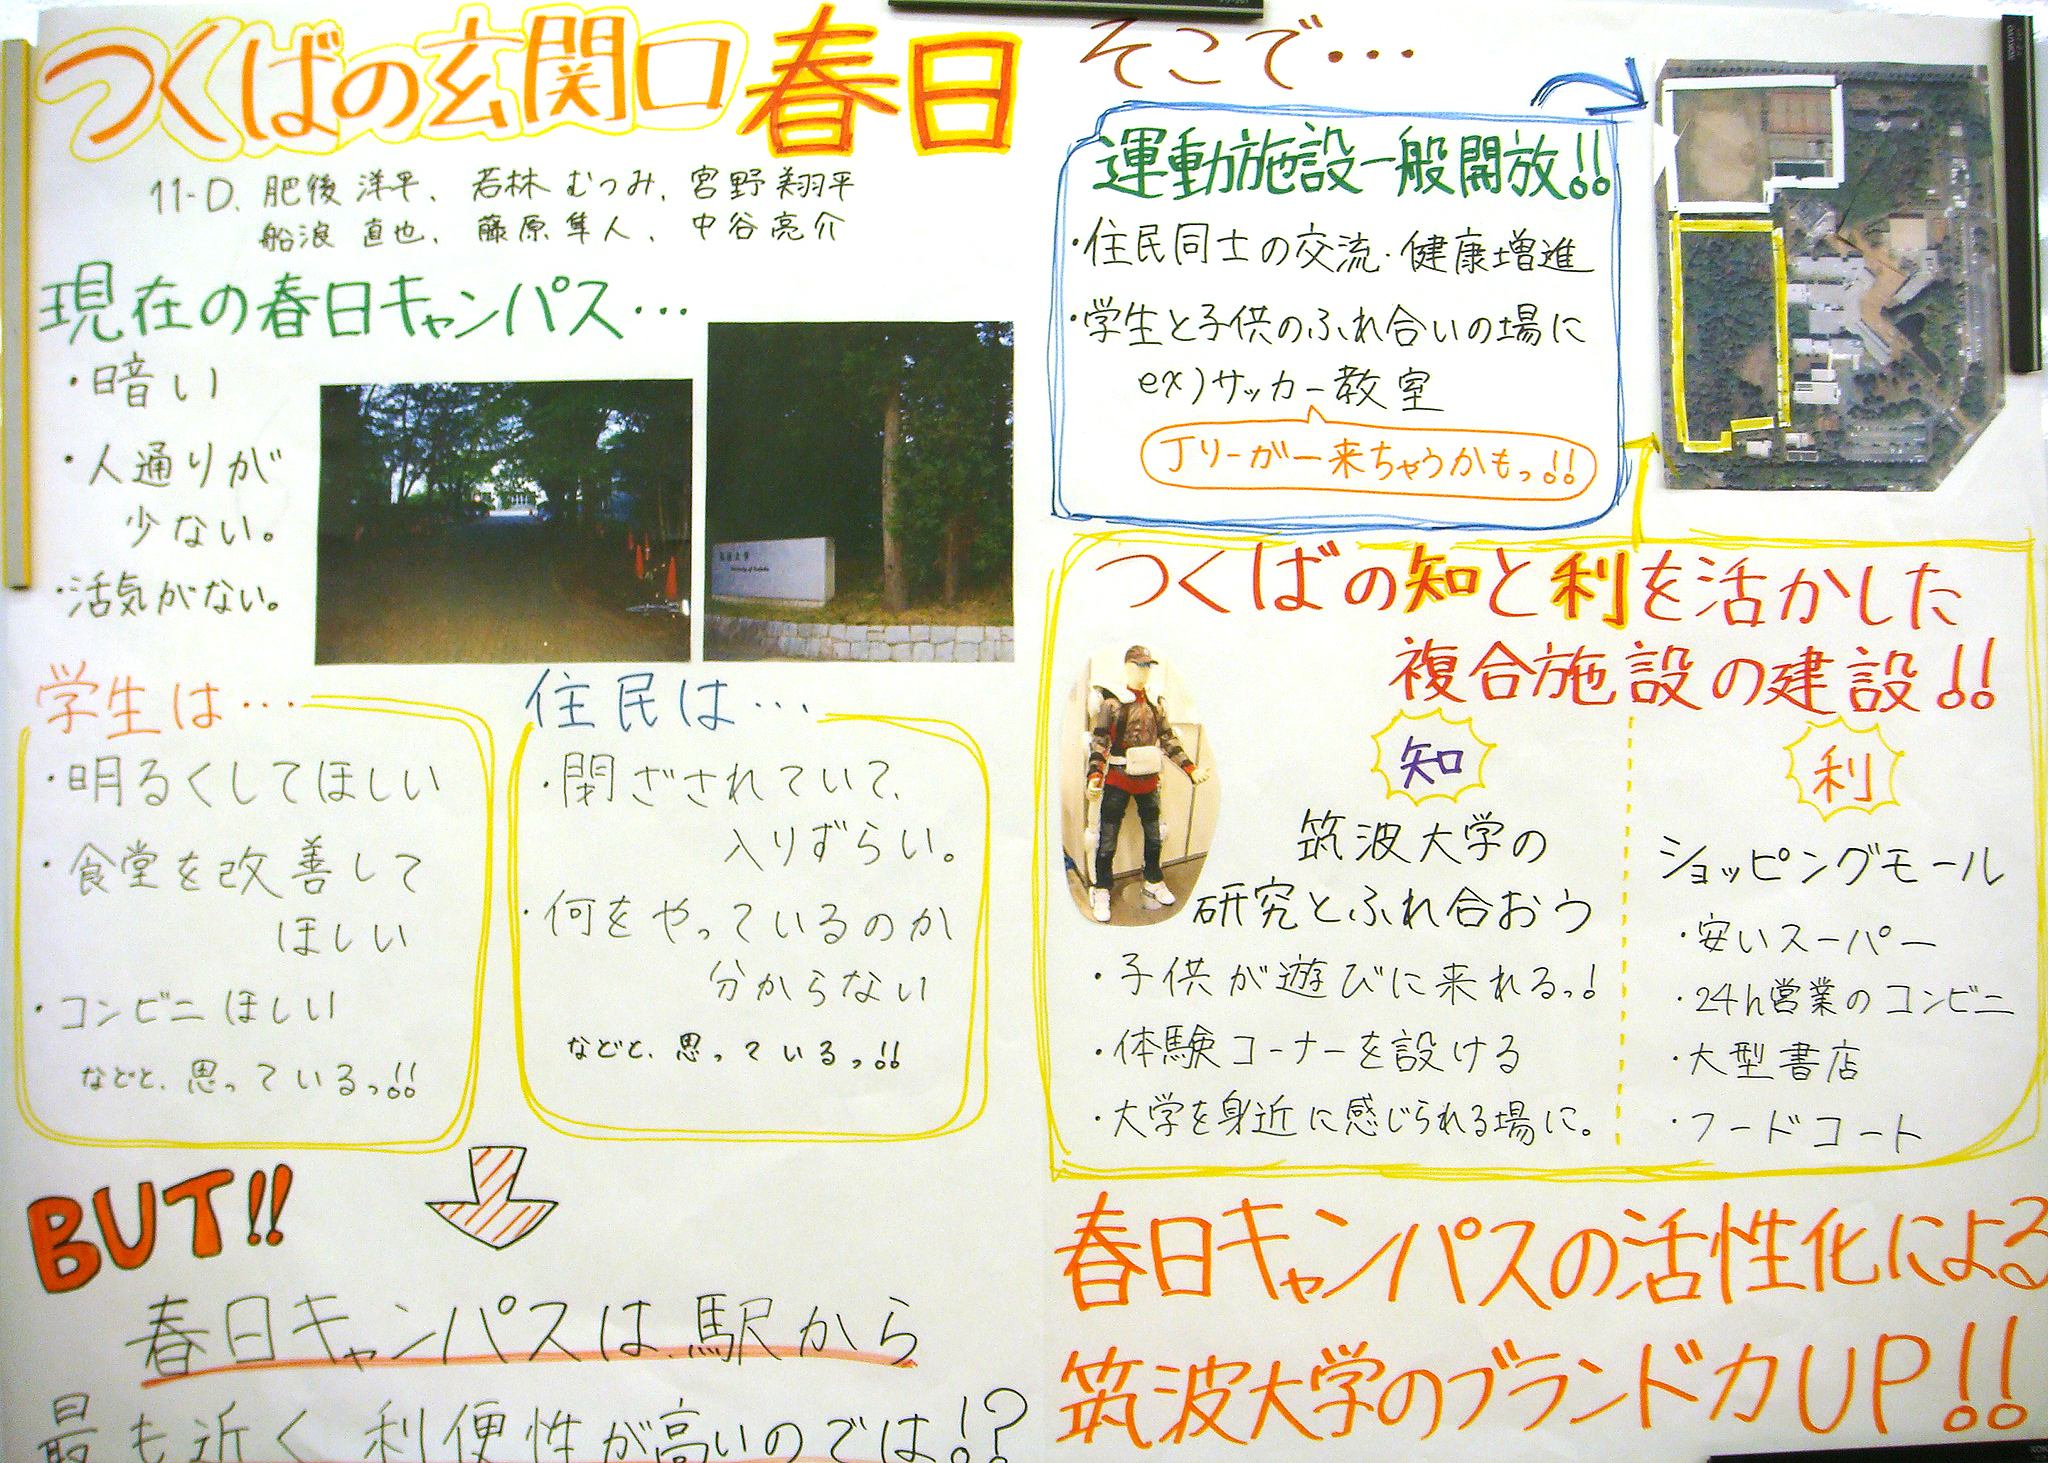 つくばの玄関口 春日
11-D. 肥後 洋平、若林 むつみ、宮野 翔平
船浪 直也、藤原 隼人、中谷 亮介
現在の春日キャンパス…
・暗い
・人通りが
少ない。
・活気がない。
筑波大学
University of Tsukuba
学生は…
・明るくしてほしい
・食堂を改善して
ほしい
・コンビニほしい
などと、思っているっ!!
住民は…
・閉ざされていて、
入りずらい。
・何をやっているのか
分からない
などと、思っているっ!!
BUT!!
春日キャンパスは、駅から
最も近く利便性が高いのでは!?
そこで…
運動施設一般開放!!
・住民同士の交流・健康増進
・学生と子供のふれ合いの場に
ex)サッカー教室
Jリーガー来ちゃうかもっ!!
つくばの知と利を活かした
複合施設の建設!!
知
筑波大学の
研究とふれ合おう
・子供が遊びに来れるっ!
・体験コーナーを設ける
・大学を身近に感じられる場に。
利
ショッピングモール
・安いスーパー
・24h営業のコンビニ
・大型書店
・フードコート
春日キャンパスの活性化による
筑波大学のブランド力UP!!